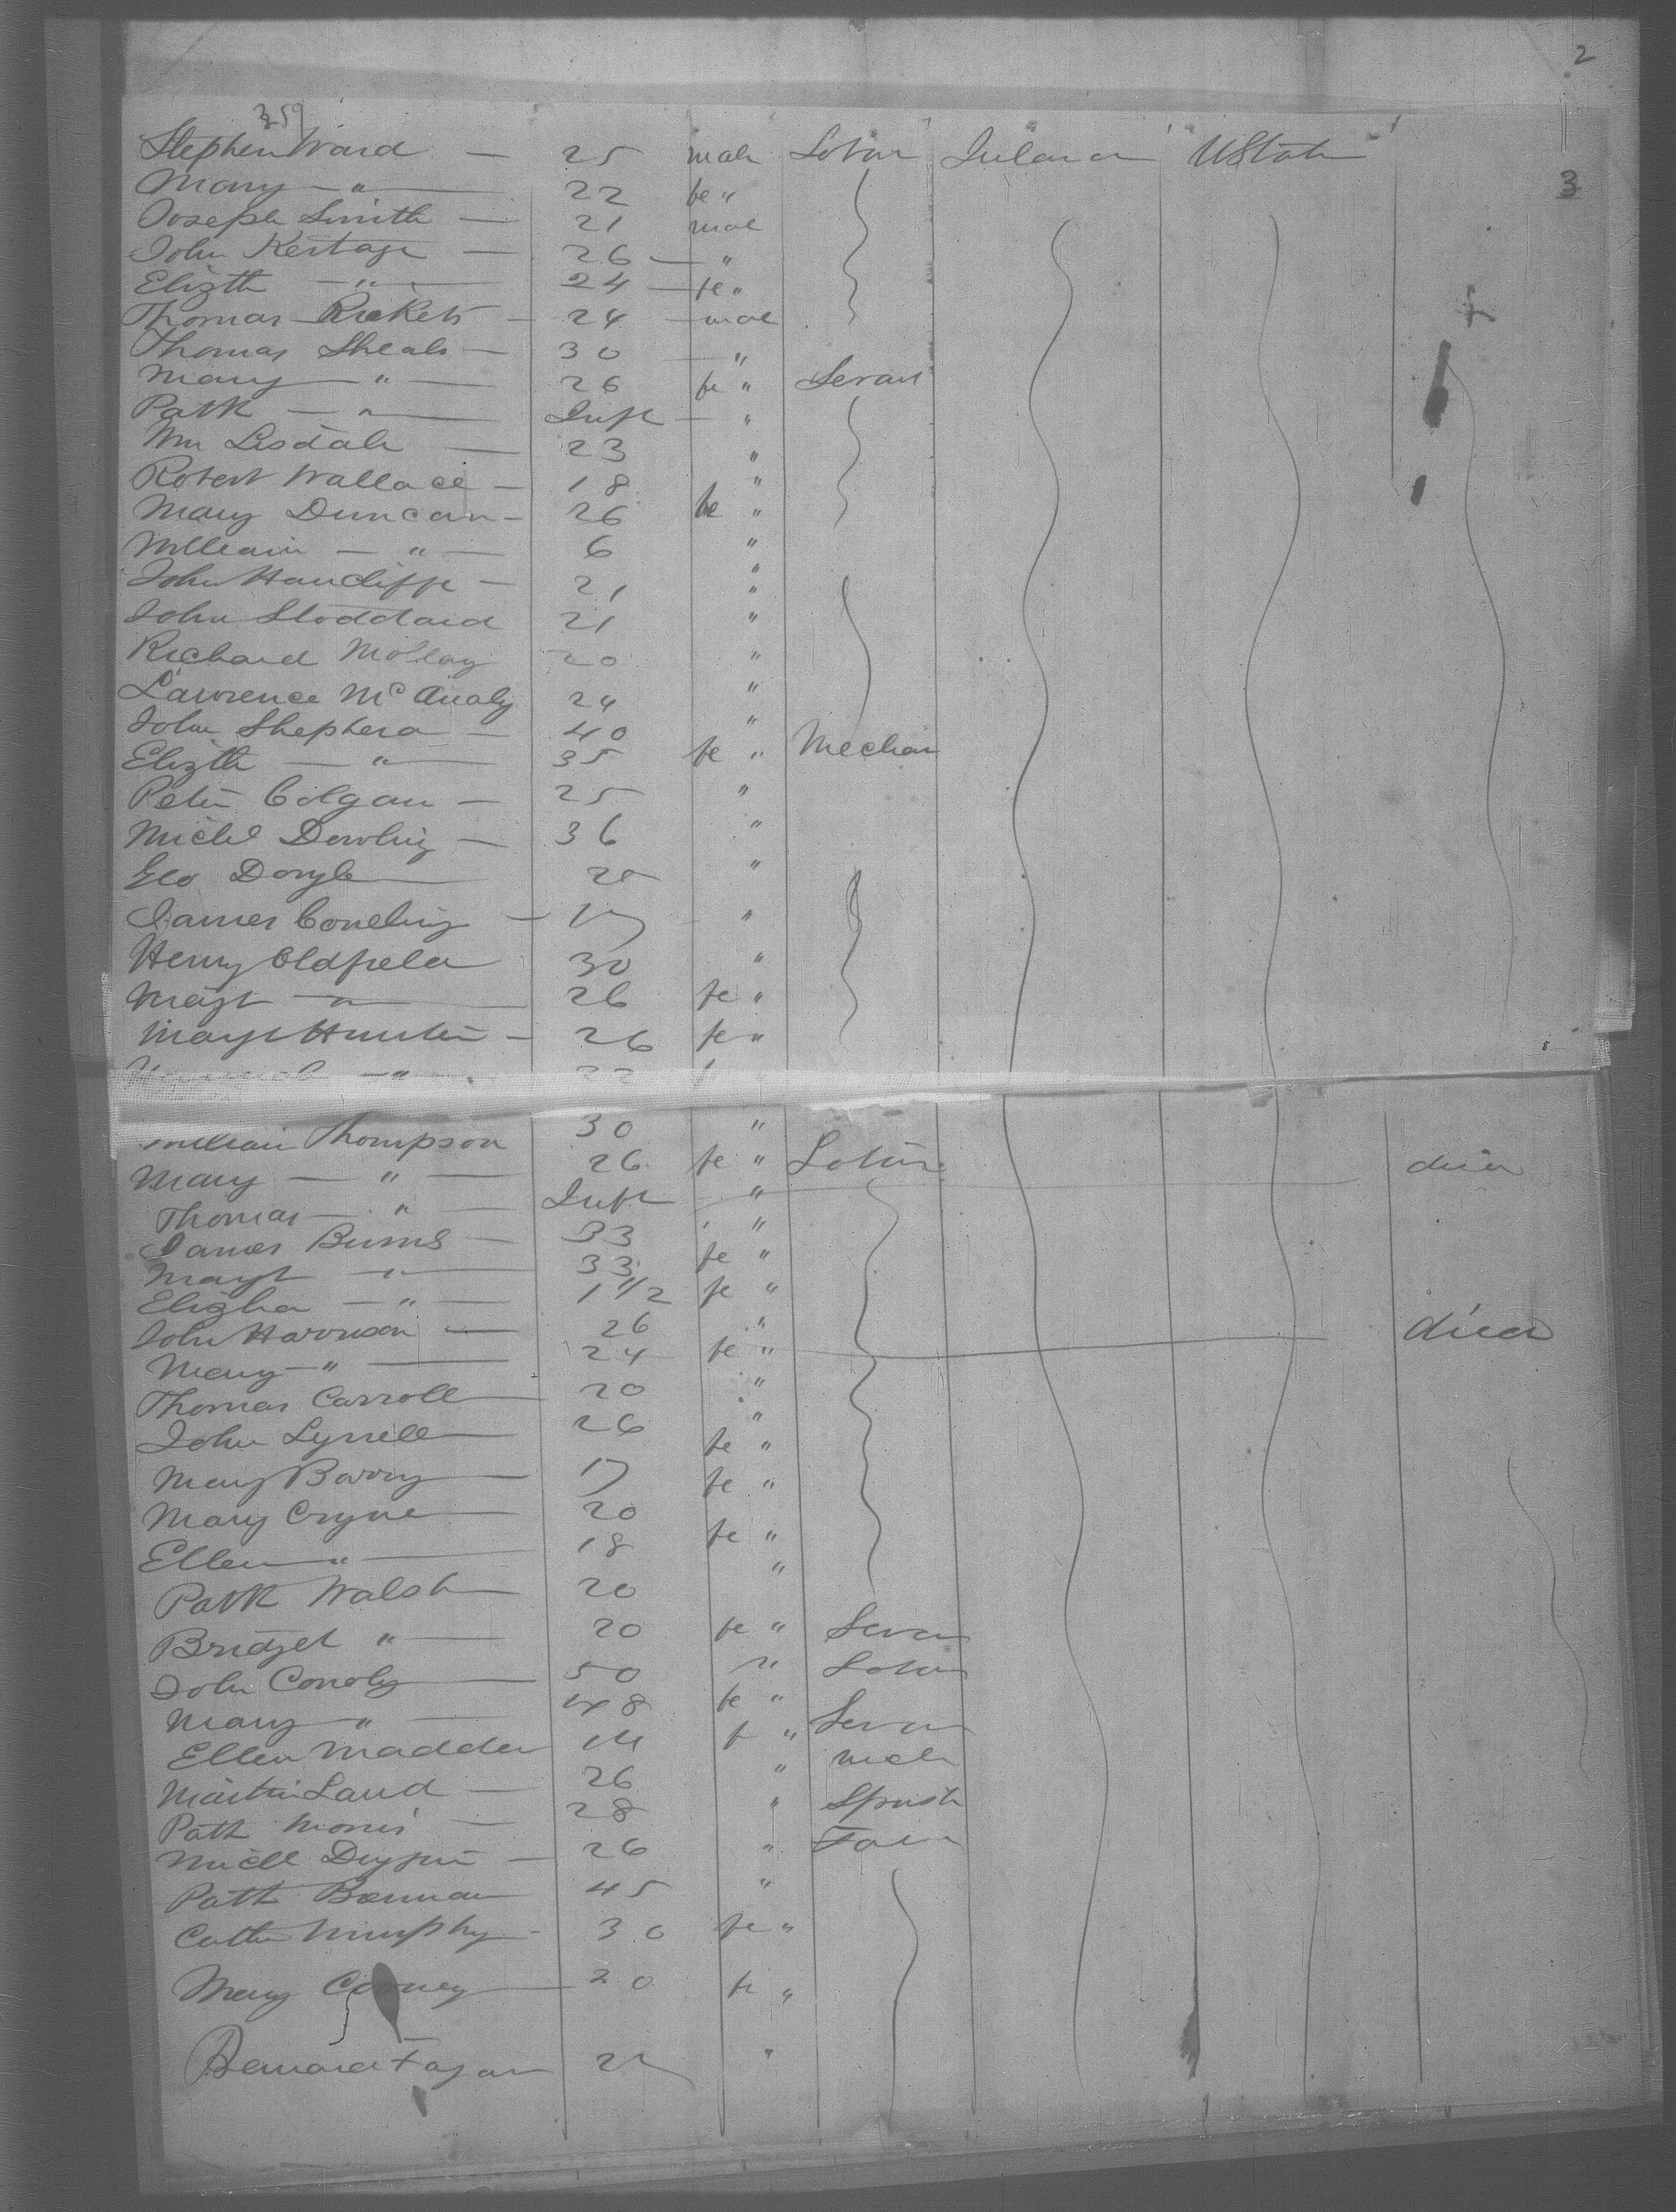 2
359
Stephen Ward — 25 male Labour Ireland U State
3
Mary — " — 22 fe "
Joseph Smith — 21 male
John Kertage — 26 — "
Elizth — " — 24 — fe "
Thomas Rickets — 24 — male
Thomas Sheals — 30 — "
Mary — " — 26 fe " Servant
Patk — " — Inft — "
Wm Lisdale — 23 "
Robert Wallace — 18 "
Mary Duncan — 26 fe "
William — " — 6 "
John Hancliffe — 21 "
John Stoddard 21 "
Richard Molloy 20 "
Lawrence McAnaly 24 "
John Shepherd — 40 "
Elizth — " — 35 fe " Mechan
Peter Colgan — 25 "
Michl Dowling — 36 "
Geo Doyle — 20 "
James Coneling — 17 "
Henry Oldfield 30 "
Magt — " — 26 fe "
Magt Hunter — 26 fe "
— " — 22
William Thompson 30 "
Mary — " — 26 fe " Labour died
Thomas — " — Inft "
James Burns — 33 "
Magt — " — 33 fe "
Elizha — " — 1 1/2 fe "
John Harrison — 26 " died
Mary — " — 24 fe "
Thomas Carroll — 20 "
John Lyrrell — 26 "
Mary Barry — 17 fe "
Mary Cryne — 20 fe "
Ellen " — 18 fe "
Patk Walsh — 20 "
Bridget " — 20 fe " Servan
John Conoly — 50 " Labour
Mary " — 48 fe " Servan
Ellen Madden 14 f "
Martin Land — 26 "
Patk Morris — 28 "
Michl — 26 "
Patk Brennan 45 "
Cathe Murphy — 30 fe "
Mary Cooney — 20 fe "
Bernard Fagan "